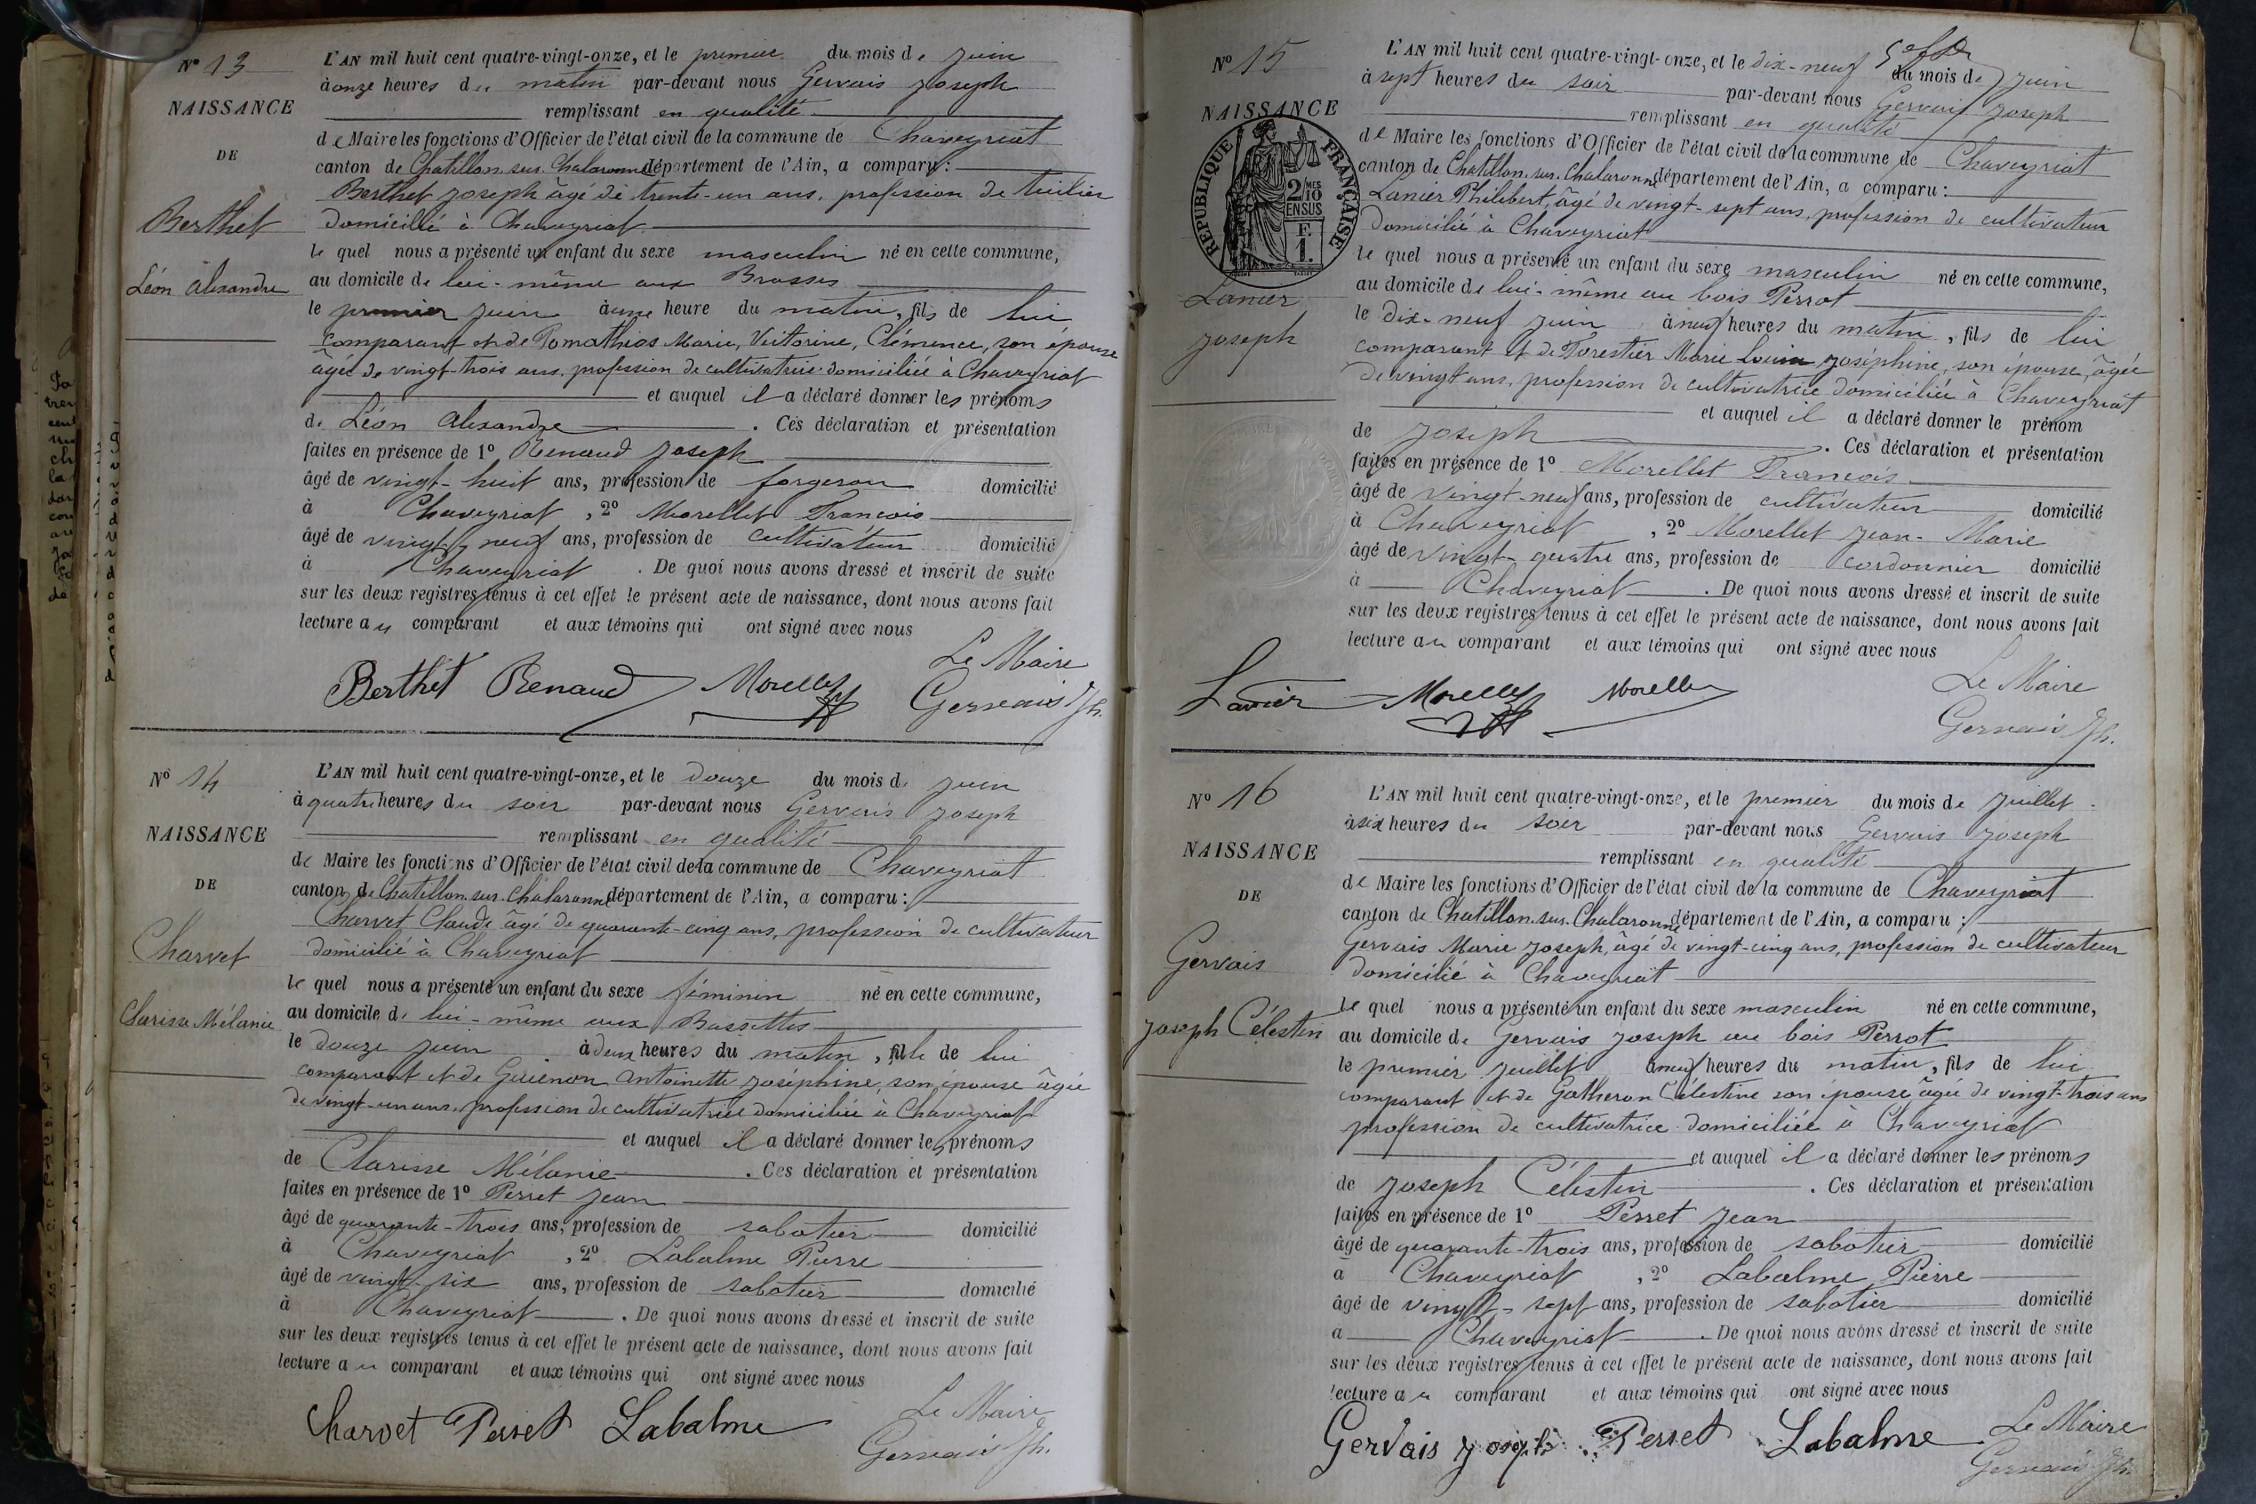 N° 13
NAISSANCE
DE
Berthet
Léon Alexandre
L'AN mil huit cent quatre-vingt-onze, et le premier du mois de juin
à onze heures du matin par-devant nous Gervais Joseph
remplissant en qualité
de Maire les fonctions d'Officier de l'état civil de la commune de Chaveyriat
canton de Chatillon-sur-Chalaronne département de l'Ain, a comparu :
Berthet Joseph âgé de trente-un ans, profession de tuilier
domicilié à Chaveyriat
le quel nous a présenté un enfant du sexe masculin né en cette commune,
au domicile de lui-même aux Brosses
le premier juin à une heure du matin, fils de lui
comparant et de Pomathios Marie, Victorine, Clémence, son épouse
âgée de vingt-trois ans, profession de cultivatrice domiciliée à Chaveyriat
et auquel il a déclaré donner les prénoms
de Léon Alexandre . Ces déclaration et présentation
faites en présence de 1° Renaud Joseph
âgé de vingt-huit ans, profession de forgeron domicilié
à Chaveyriat , 2° Morellet François
âgé de vingt-neuf ans, profession de cultivateur domicilié
à Chaveyriat . De quoi nous avons dressé et inscrit de suite
sur les deux registres tenus à cet effet le présent acte de naissance, dont nous avons fait
lecture au comparant et aux témoins qui ont signé avec nous
Le Maire
Berthet Renaud Morellet Gervais Jh.
N° 14
NAISSANCE
DE
Charvet
Clarisse Mélanie
L'AN mil huit cent quatre-vingt-onze, et le douze du mois de juin
à quatre heures du soir par-devant nous Gervais Joseph
remplissant en qualité
de Maire les fonctions d'Officier de l'état civil de la commune de Chaveyriat
canton de Chatillon-sur-Chalaronne département de l'Ain, a comparu :
Charvet Claude âgé de quarante-cinq ans, profession de cultivateur
domicilié à Chaveyriat
le quel nous a présenté un enfant du sexe féminin né en cette commune,
au domicile de lui-même aux Bassettes
le douze juin à deux heures du matin, fille de lui
comparant et de Guienon Antoinette Joséphine, son épouse âgée
de vingt-un ans, profession de cultivatrice domiciliée à Chaveyriat
et auquel il a déclaré donner les prénoms
de Clarisse Mélanie . Ces déclaration et présentation
faites en présence de 1° Perret Jean
âgé de quarante-trois ans, profession de sabotier domicilié
à Chaveyriat , 2° Labalme Pierre
âgé de vingt-six ans, profession de sabotier domicilié
à Chaveyriat . De quoi nous avons dressé et inscrit de suite
sur les deux registres tenus à cet effet le présent acte de naissance, dont nous avons fait
lecture au comparant et aux témoins qui ont signé avec nous
Le Maire
Charvet Perret Labalme Gervais Jh.
N° 15
NAISSANCE
RÉPUBLIQUE FRANÇAISE
2/10 MES
EN SUS
F.
1.
Lanier
Joseph
L'AN mil huit cent quatre-vingt-onze, et le dix-neuf du mois de juin
à sept heures du soir par-devant nous Gervais Joseph
remplissant en qualité
de Maire les fonctions d'Officier de l'état civil de la commune de Chaveyriat
canton de Chatillon-sur-Chalaronne département de l'Ain, a comparu :
Lanier Philibert, âgé de vingt-sept ans, profession de cultivateur
domicilié à Chaveyriat
le quel nous a présenté un enfant du sexe masculin né en cette commune,
au domicile de lui-même au bois Perrot
le dix-neuf juin à neuf heures du matin, fils de lui
comparant et de Forestier Marie Louise Joséphine, son épouse, âgée
de vingt ans, profession de cultivatrice domiciliée à Chaveyriat
et auquel il a déclaré donner le prénom
de Joseph . Ces déclaration et présentation
faites en présence de 1° Morellet François
âgé de vingt-neuf ans, profession de cultivateur domicilié
à Chaveyriat , 2° Morellet Jean-Marie
âgé de vingt-quatre ans, profession de cordonnier domicilié
à Chaveyriat . De quoi nous avons dressé et inscrit de suite
sur les deux registres tenus à cet effet le présent acte de naissance, dont nous avons fait
lecture au comparant et aux témoins qui ont signé avec nous
Le Maire
Lanier Morellet Morellet Gervais Jh.
N° 16
NAISSANCE
DE
Gervais
Joseph Célestin
L'AN mil huit cent quatre-vingt-onze, et le premier du mois de juillet
à six heures du soir par-devant nous Gervais Joseph
remplissant en qualité
de Maire les fonctions d'Officier de l'état civil de la commune de Chaveyriat
canton de Chatillon-sur-Chalaronne département de l'Ain, a comparu :
Gervais Marie Joseph, âgé de vingt-cinq ans, profession de cultivateur
domicilié à Chaveyriat
le quel nous a présenté un enfant du sexe masculin né en cette commune,
au domicile de Gervais Joseph au bois Perrot
le premier juillet à neuf heures du matin, fils de lui
comparant et de Gatheron Célestine son épouse, âgée de vingt-trois ans
profession de cultivatrice domiciliée à Chaveyriat
et auquel il a déclaré donner les prénoms
de Joseph Célestin . Ces déclaration et présentation
faites en présence de 1° Perret Jean
âgé de quarante-trois ans, profession de sabotier domicilié
à Chaveyriat , 2° Labalme Pierre
âgé de vingt-sept ans, profession de sabotier domicilié
à Chaveyriat . De quoi nous avons dressé et inscrit de suite
sur les deux registres tenus à cet effet le présent acte de naissance, dont nous avons fait
lecture au comparant et aux témoins qui ont signé avec nous
Le Maire
Gervais Joseph Perret Labalme Gervais Jh.